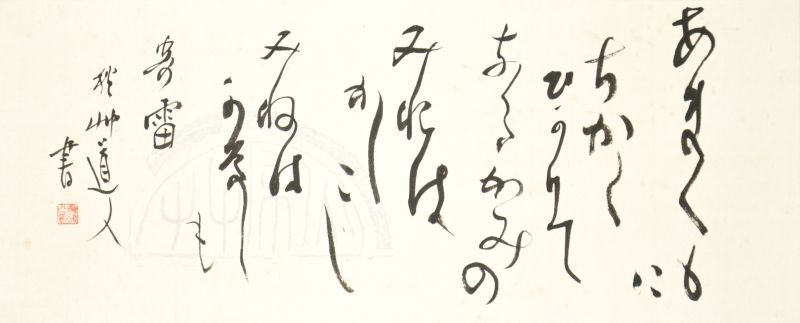 あまくも
に
ちかく
ひかりて
なるかみの
みれは
かしこし
みねは
かなし
も
寄雷
秋艸道人
書